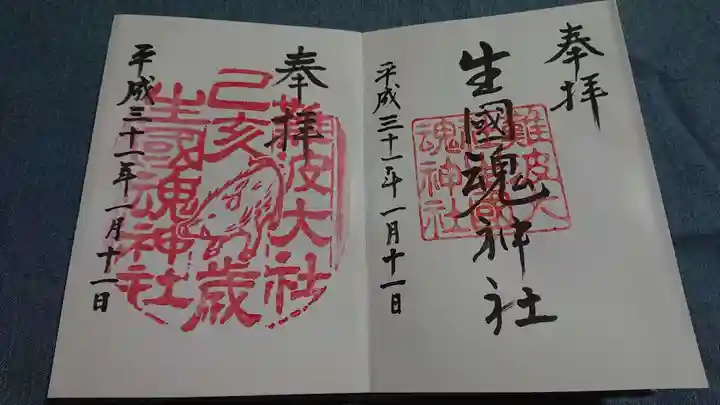 奉拝
生國魂神社
難波大
生國
魂神社
平成三十一年一月十一日
奉拝
難波大社
己亥歳
生國魂神社
平成三十一年一月十一日